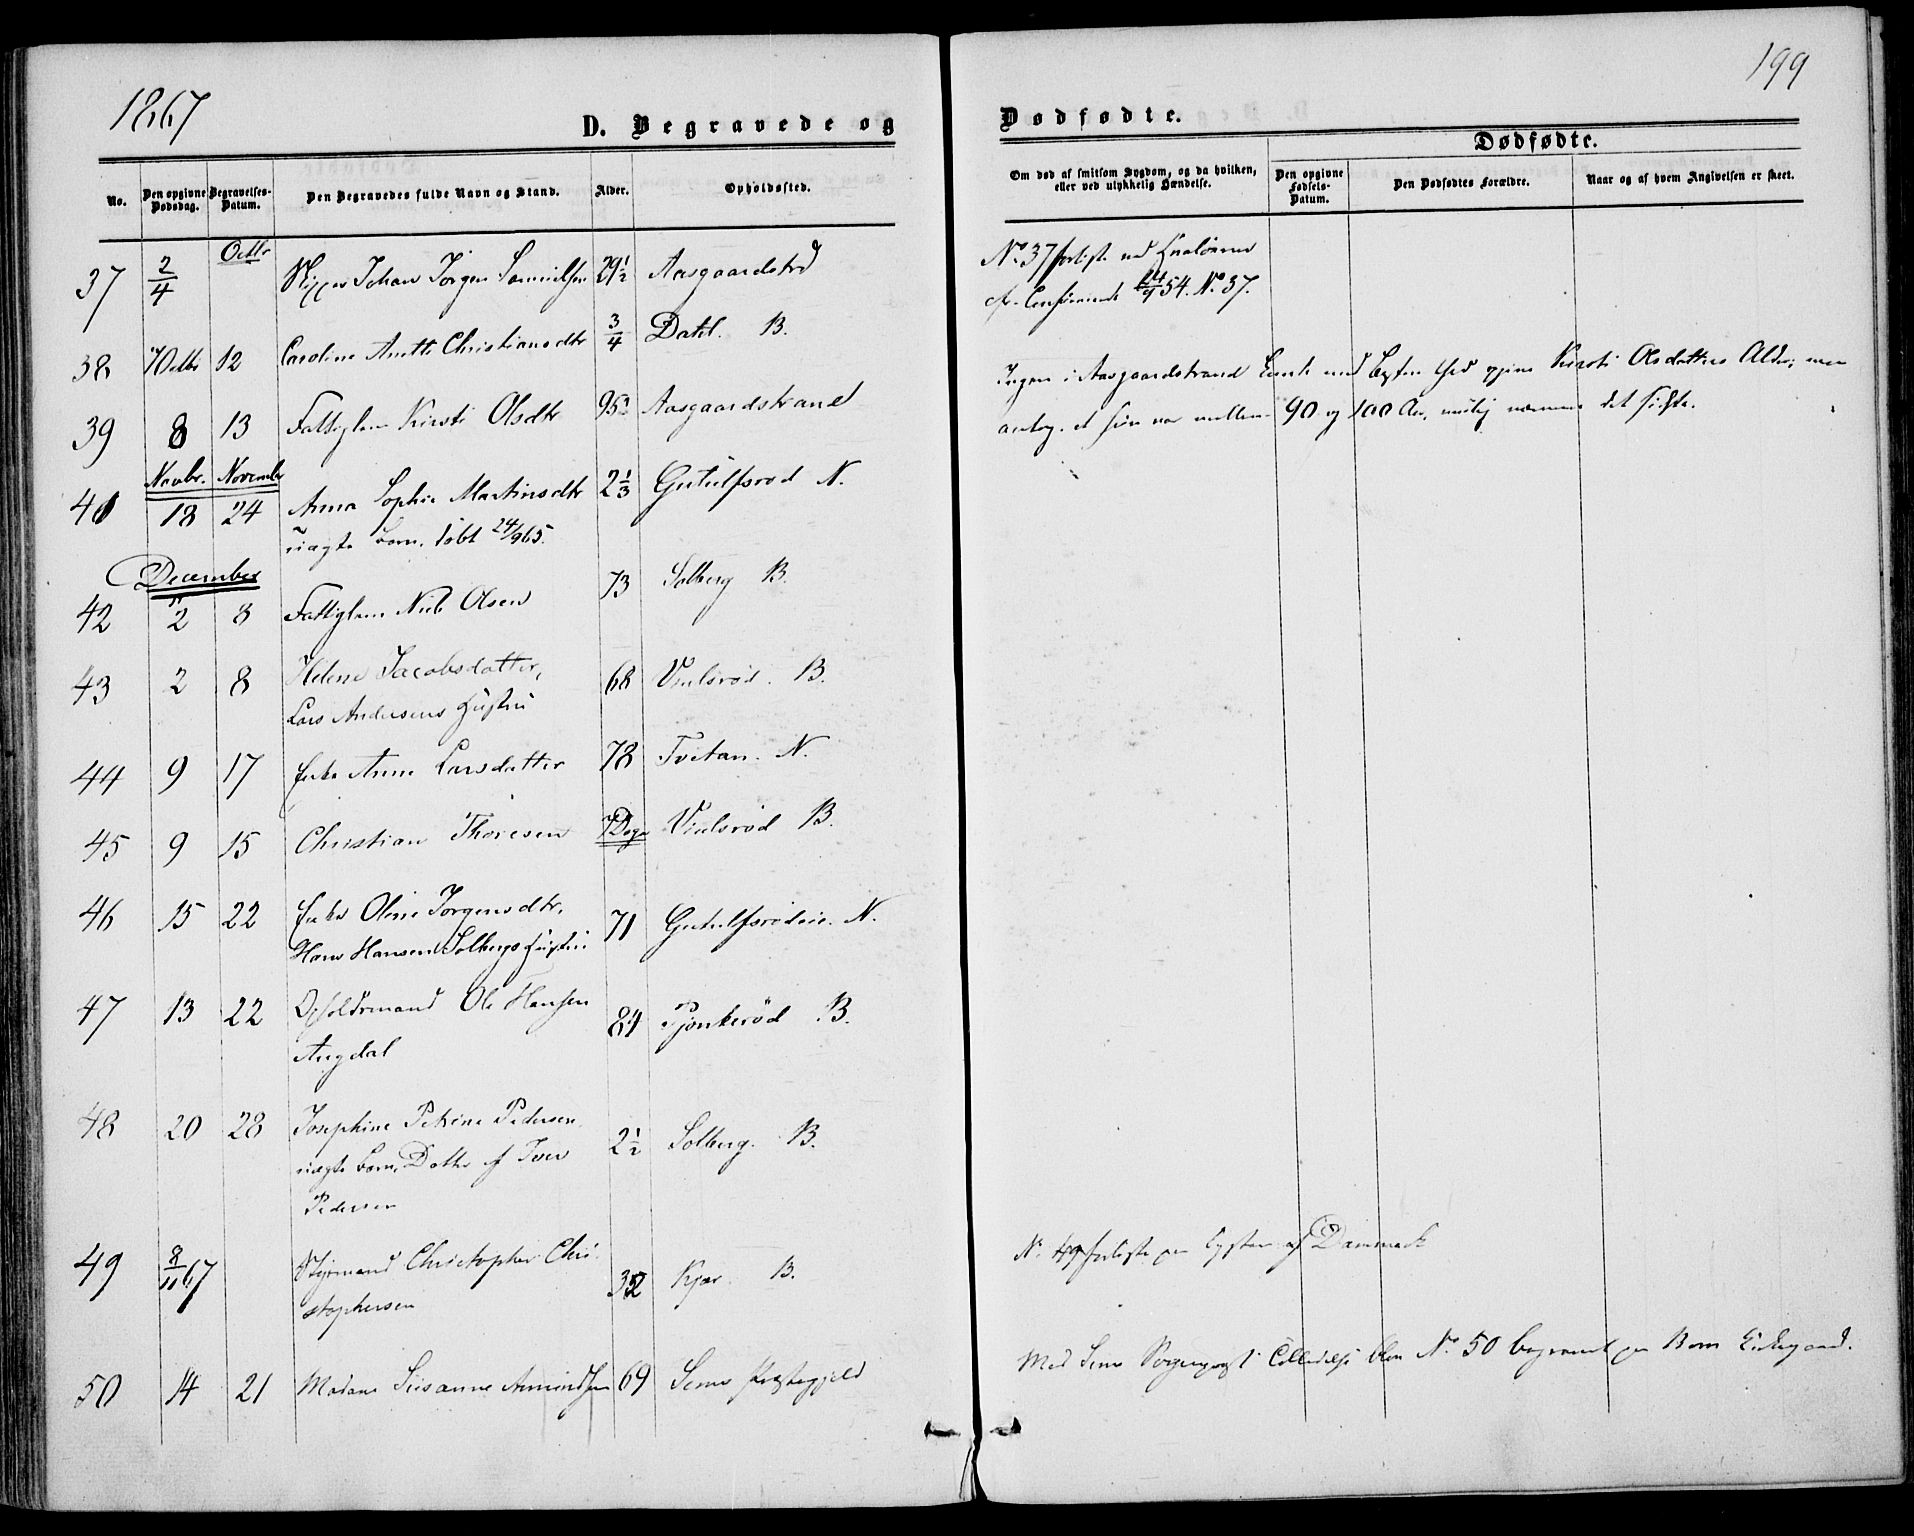 1867
199
D. Begravede og
Dødfødte.
Dødfødte.
No.
Den opgivne Dødsdag.
Begravelses-Datum.
Den Begravedes fulde Navn og Stand.
Alder.
Opholdssted.
Om død af smitsom Sygdom, og da hvilken, eller ved ulykkelig Hændelse.
Den opgivne Fødsels-Datum.
Den Dødfødtes Forældre.
Naar og af hvem Angivelsen er skeet.
Octbr
37 2/4 Skipper Johan Jørgen Samuelsen 29 1/2 Aasgaardstrd
No 37 forliste ved
54. No 37.
38 7 Octbr 12 Caroline Anette Christiansdtr 3/4 Dahl. B.
39 8 13 Fattiglem Kirsti Olsdtr 95 Aasgaardstrand
Ingen i Aasgaardstrand med opgive Kirsti Olsdatters Alder, men
antog, at hun var mellem 90 og 100 Aar, nærmere det sidste.
Novbr. November
41 18 24 Anna Sophie Martinsdtr 2 1/3 Gutulfsrød N.
uægte Barn. døbt 24/9 65.
December
42 2 8 Fattiglem Niels Olsen 73 Solberg B.
43 2 8 Helene Jacobsdatter, 68 Vinlsrød. B.
Lars Andersens Hustru
44 9 17 Enke Anne Larsdatter 78 Tvetan. N.
45 9 15 Christian Thoresen 7 Dage Vinlsrød B.
46 15 22 Enke Oline Jørgensdtr, 71 Gutulfsrødeie. N.
Hans Hansen Solbergs Hustru
47 13 22 Opholdsmand Ole Hansen 84 Pjonkerød B.
Augdal
48 20 28 Josephine Petrine Pedersen 2 1/2 Solberg. B.
uægte Barn, Datter af Iver
Pedersen
49 8/11 67 Styrmand Christopher Chri- 32 Kjær. B.
stophersen
No 49 forliste paa Kysten af Danmark
50 14 21 Madame Susanne Amundsen 69 Sems Præstegjeld
Med Sems Sogneprests Tilladelse blev No 50 begravet paa Borre Kirkegaard.